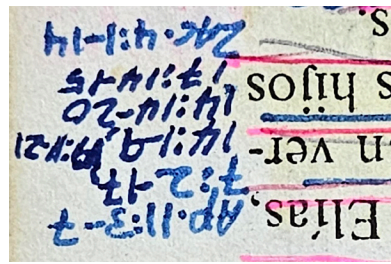 Elías,
n ver-
s hijos
s.
Ap. 11:3-7
7:2-17
14:1-9,
14:14-20
17:14-15
Zac. 4:1-14